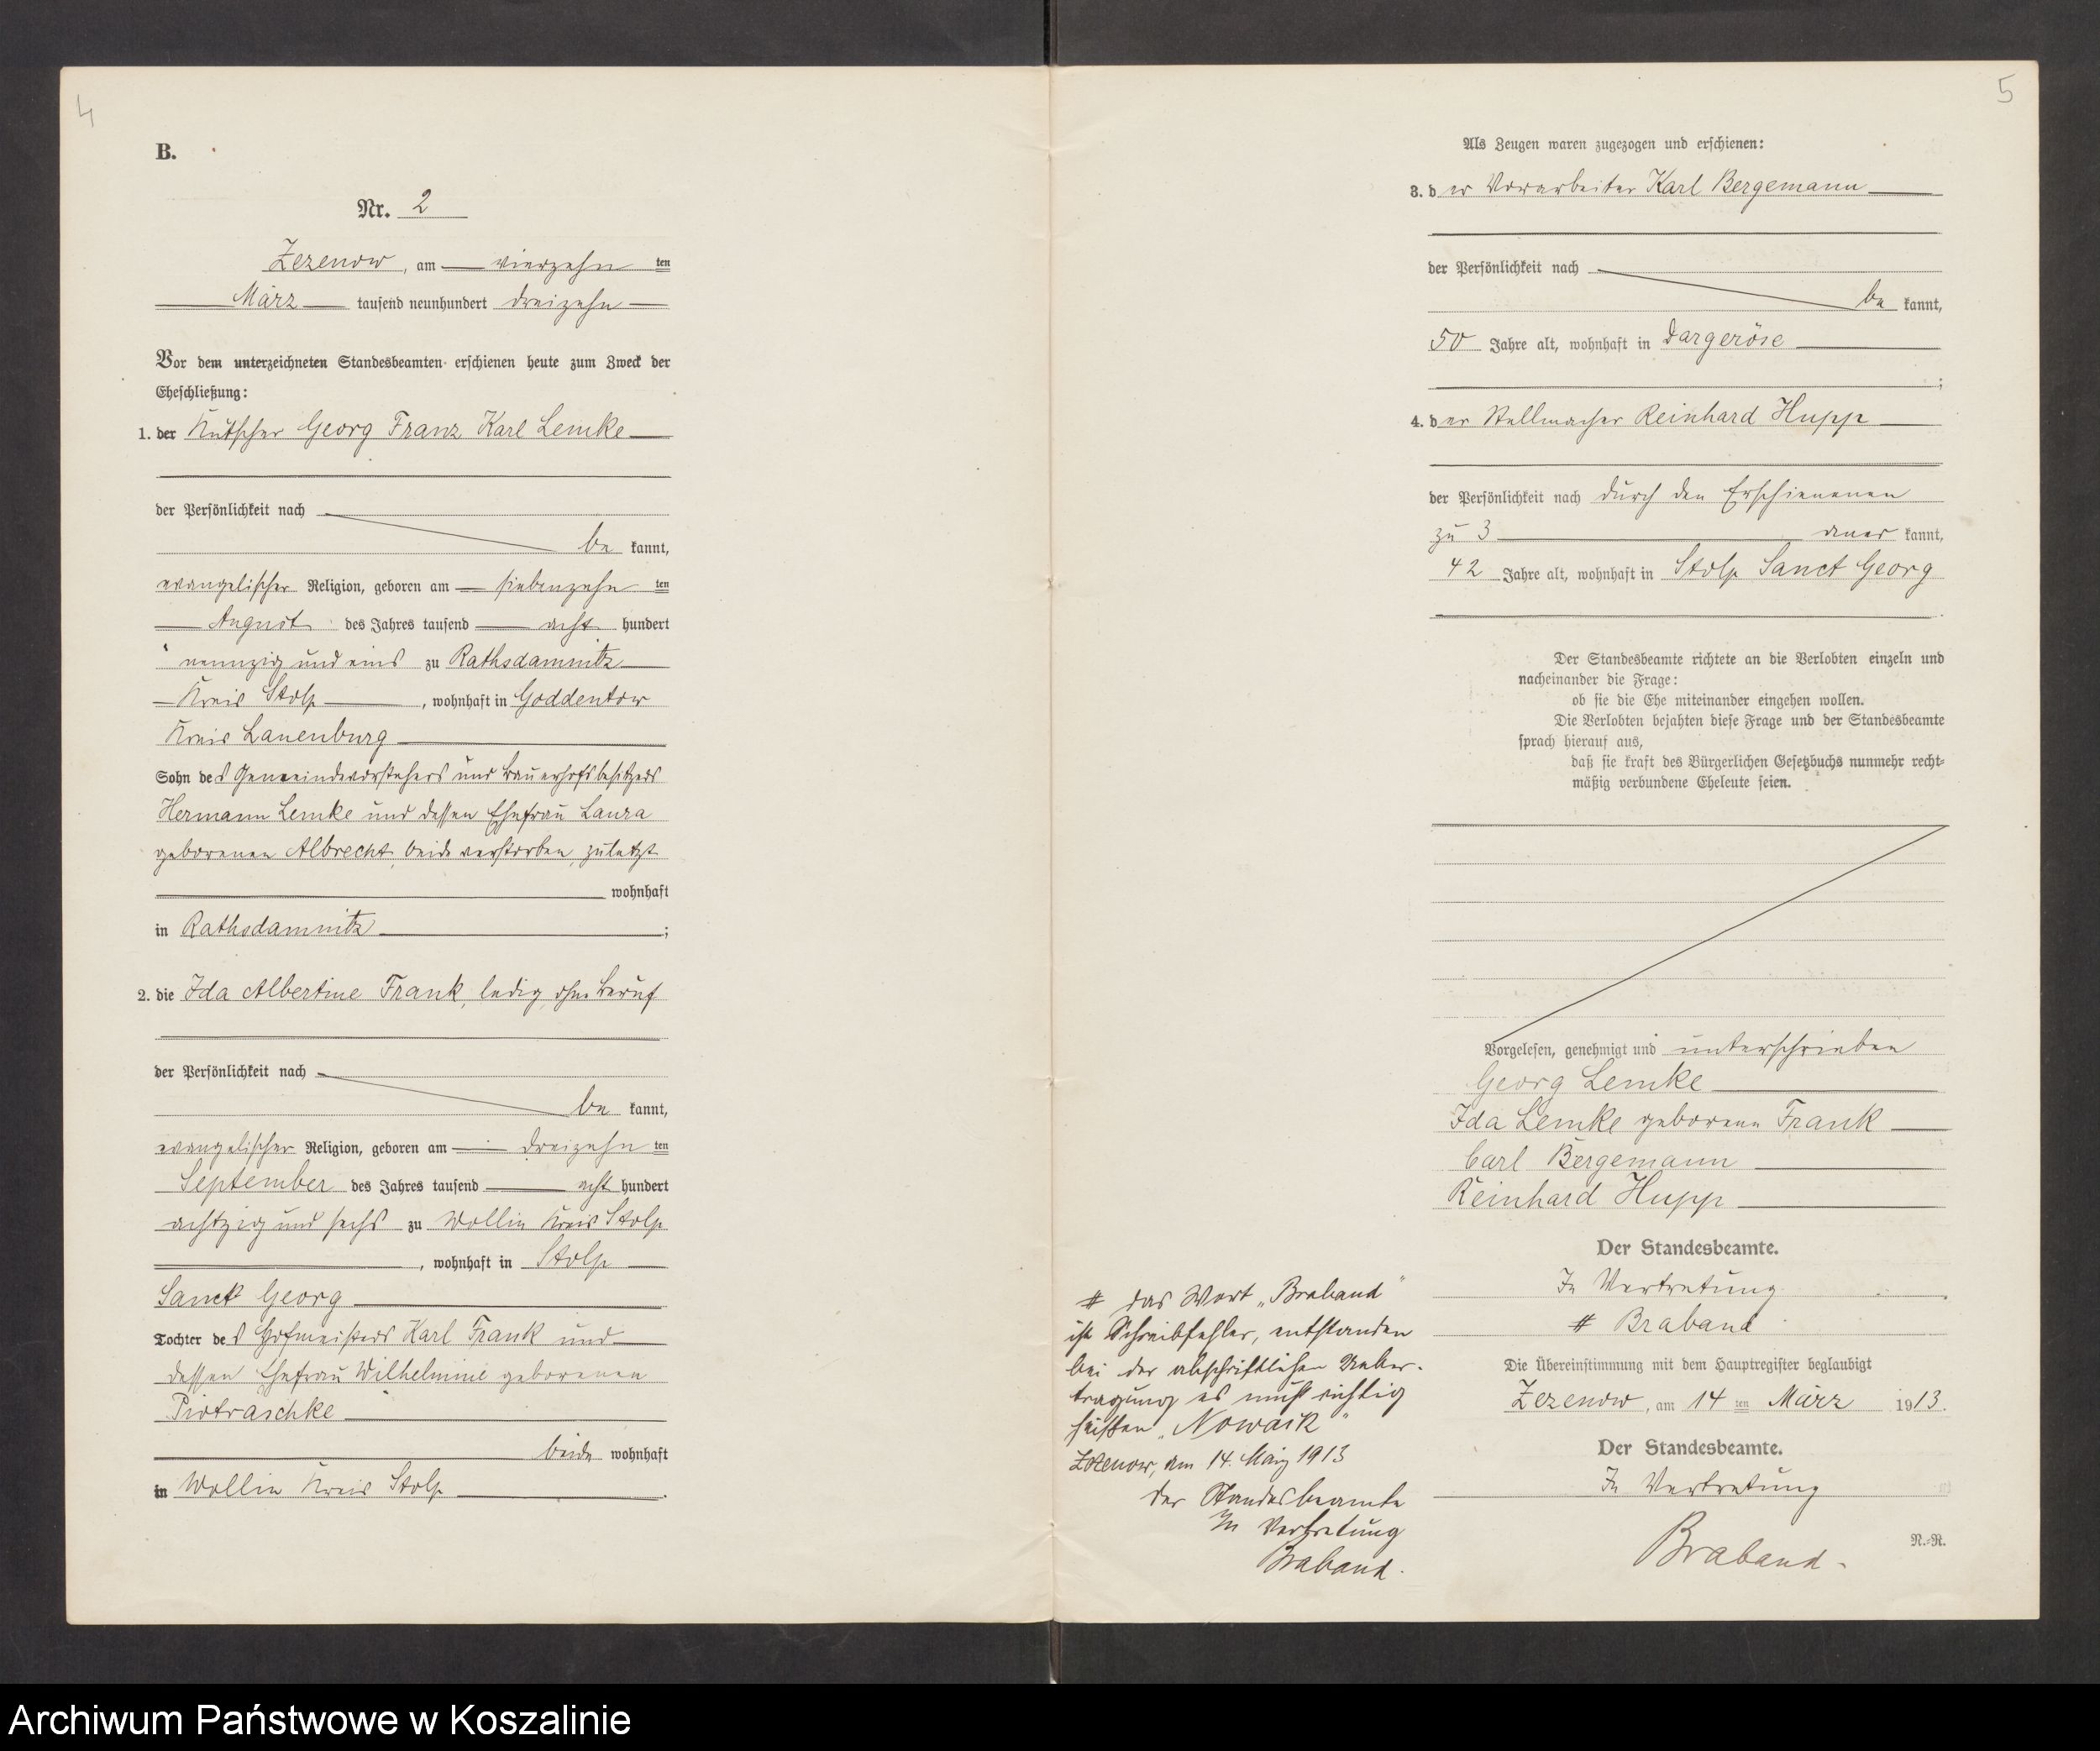 4
B.
Nr. 2
Zezenow, am vierzehnten
März tausend neunhundert dreizehn
Vor dem unterzeichneten Standesbeamten erschienen heute zum Zweck der
Eheschließung:
1. der Kutscher Georg Franz Karl Lemke
der Persönlichkeit nach
be kannt,
evangelischer Religion, geboren am siebenzehn ten
August des Jahres tausend acht hundert
neunzig und eins zu Rathsdamnitz
Kreis Stolp, wohnhaft in Goddentow
Kreis Lauenburg
Sohn des Gemeindevorstehers und Bauerhofsbesitzers
Hermann Lemke und dessen Ehefrau Laura
geborenen Albrecht, beide verstorben, zuletzt
wohnhaft
in Rathsdamnitz;
2. die Ida Albertine Frank, ledig, ohne Beruf
der Persönlichkeit nach
be kannt,
evangelischer Religion, geboren am dreizehn ten
September des Jahres tausend acht hundert
achtzig und sechs zu Wollin Kreis Stolp
, wohnhaft in Stolp
Sanct Georg
Tochter des Hofmeisters Karl Frank und
dessen Ehefrau Wilhelmine geborenen
Piotraschke
beide wohnhaft
in Wollin Kreis Stolp.
5
Als Zeugen waren zugezogen und erschienen:
3. der Vorarbeiter Karl Bergemann
der Persönlichkeit nach
be kannt,
50 Jahre alt, wohnhaft in Dargeröse
;
4. der Stellmacher Reinhard Hupp
der Persönlichkeit nach durch den Erschienenen
zu 3 aner kannt,
42 Jahre alt, wohnhaft in Stolp Sanct Georg
.
Der Standesbeamte richtete an die Verlobten einzeln und
nacheinander die Frage:
ob sie die Ehe miteinander eingehen wollen.
Die Verlobten bejahten diese Frage und der Standesbeamte
sprach hierauf aus,
daß sie kraft des Bürgerlichen Gesetzbuchs nunmehr recht-
mäßig verbundene Eheleute seien.
Vorgelesen, genehmigt und unterschrieben
Georg Lemke
Ida Lemke geborene Frank
Carl Bergemann
Reinhard Hupp
Der Standesbeamte.
In Vertretung.
# Braband
Die Übereinstimmung mit dem Hauptregister beglaubigt
Zezenow, am 14 ten März 1913.
Der Standesbeamte.
In Vertretung
Braband.
N.-R.
# Das Wort „Braband"
ist Schreibfehler, entstanden
bei der abschriftlichen Ueber-
tragung es muß richtig
heißen „Nowack"
Zezenow, am 14. März 1913
Der Standesbeamte
In Vertretung
Braband.
Archiwum Państwowe w Koszalinie